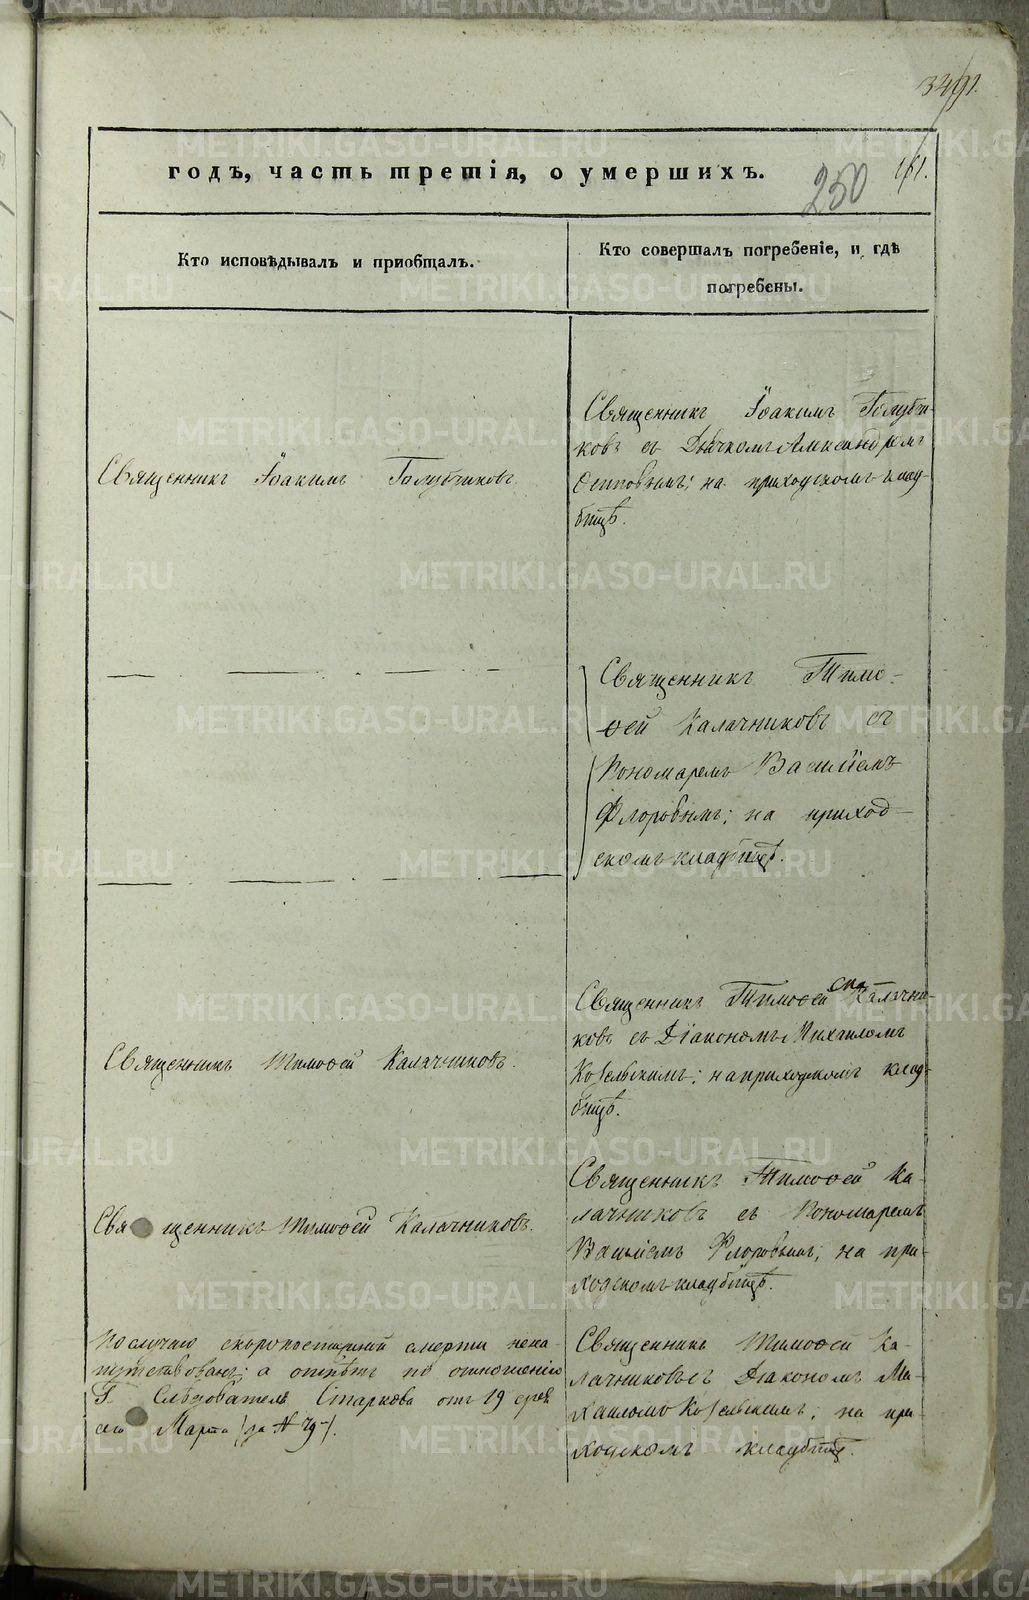 349
годъ, часть третія, о умершихъ.
250
Кто исповѣдывалъ и пріобщалъ.
Кто совершалъ погребеніе, и гдѣ
погребены.
Священникъ Іоакимъ Голубчиковъ
Священникъ Іоакимъ Голубчи-
ковъ съ Дьячкомъ Александромъ
Осиповымъ; на приходскомъ клад-
бищѣ.
Священникъ Тимо-
ѳей Калачниковъ съ
Пономаремъ Василіемъ
Флоровымъ; на приход-
скомъ кладбищѣ.
Священникъ Тимоѳей Калачниковъ.
Священникъ Тимоѳей Калачни-
ковъ съ Діакономъ Михаиломъ
Козельскимъ; на приходскомъ клад-
бищѣ.
Священникъ Тимоѳей Калачниковъ.
Священникъ Тимоѳей Ка-
лачниковъ съ Пономаремъ
Василіемъ Флоровымъ; на при-
ходскомъ кладбищѣ.
По случаю скоропостижной смерти нена-
путствованъ; а отпѣтъ по отношенію
Г. Слѣдователя Старкова отъ 19
Марта за №
Священникъ Тимоѳей Ка-
лачниковъ съ Діакономъ Ми-
хаиломъ Козельскимъ; на при-
ходскомъ кладбищѣ.
METRIKI.GASO-URAL.RU